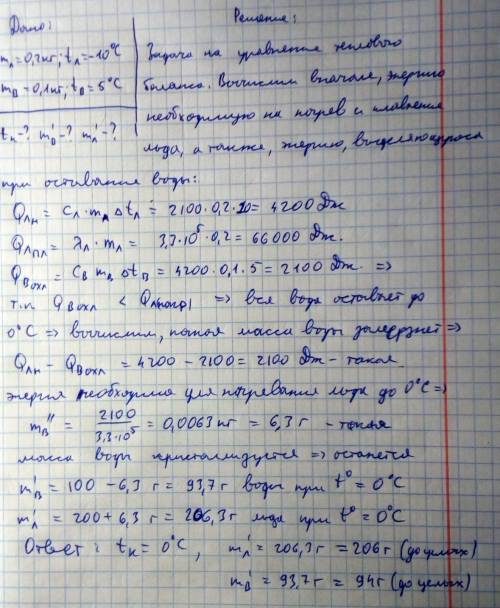 Дано:
Решение:
mл=0,2кг; tл=-10°C
mв=0,1кг; tв=5°C
tк-? mв'-? mл'-?
Задача на уравнение теплового
баланса. Вычислим вначале, энергию
необходимую на нагрев и плавление
льда, а также, энергию, выделяющуюся
при остывание воды:
Qлн = cл·mл Δtл = 2100·0,2·10 = 4200 Дж
Qлпл = λл·mл = 3,3·10⁵·0,2 = 66000 Дж.
Qвохл = cв mв Δtв = 4200·0,1·5 = 2100 Дж. =>
т.к Qвохл < Qлнагр => вся вода остынет до
0°C => вычислим, какая масса воды замерзнет =>
Qлн - Qвохл = 4200 - 2100 = 2100 Дж - такая
энергия необходима для нагревания льда до 0°C =>
mв'' = 2100/3,3·10⁵ = 0,0063кг = 6,3 г - такая
масса воды кристаллизуется => останется
mв' = 100 - 6,3 г = 93,7 г воды при t° = 0°C
mл' = 200 + 6,3 г = 206,3 г льда при t° = 0°C
Ответ: tк = 0°C, mл' = 206,3 г = 206 г (до целых)
mв' = 93,7 г = 94 г (до целых)